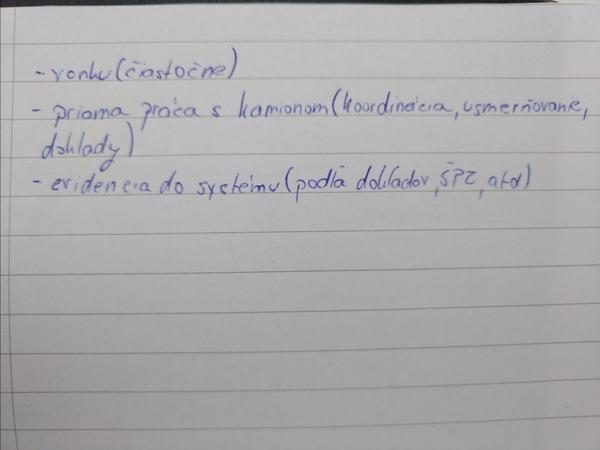 - vonku (čiastočne)
- priama práca s kamionom (koordinácia, usmerňovanie,
doklady)
- evidencia do systému (podľa dokladov, ŠPZ, atď)